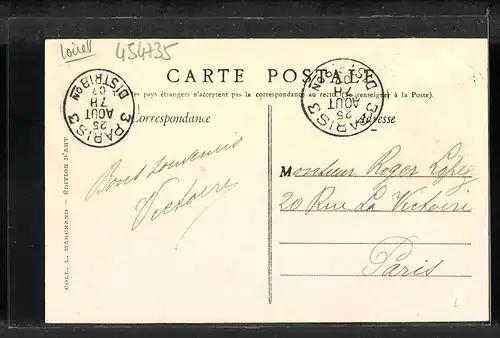 Loiret
454735
CARTE POSTALE
les pays étrangers n'acceptent pas la correspondance au recto, (se renseigner à la Poste).
Correspondance
Adresse
PARIS 3
DISTRIBON
25
AOUT
7H
07
PARIS 3
25
AOUT
Bons souvenirs
Victoire
Monsieur Roger Lopez
20 Rue La Victoire
Paris
COLL. L. MARCHAND — ÉDITION D'ART